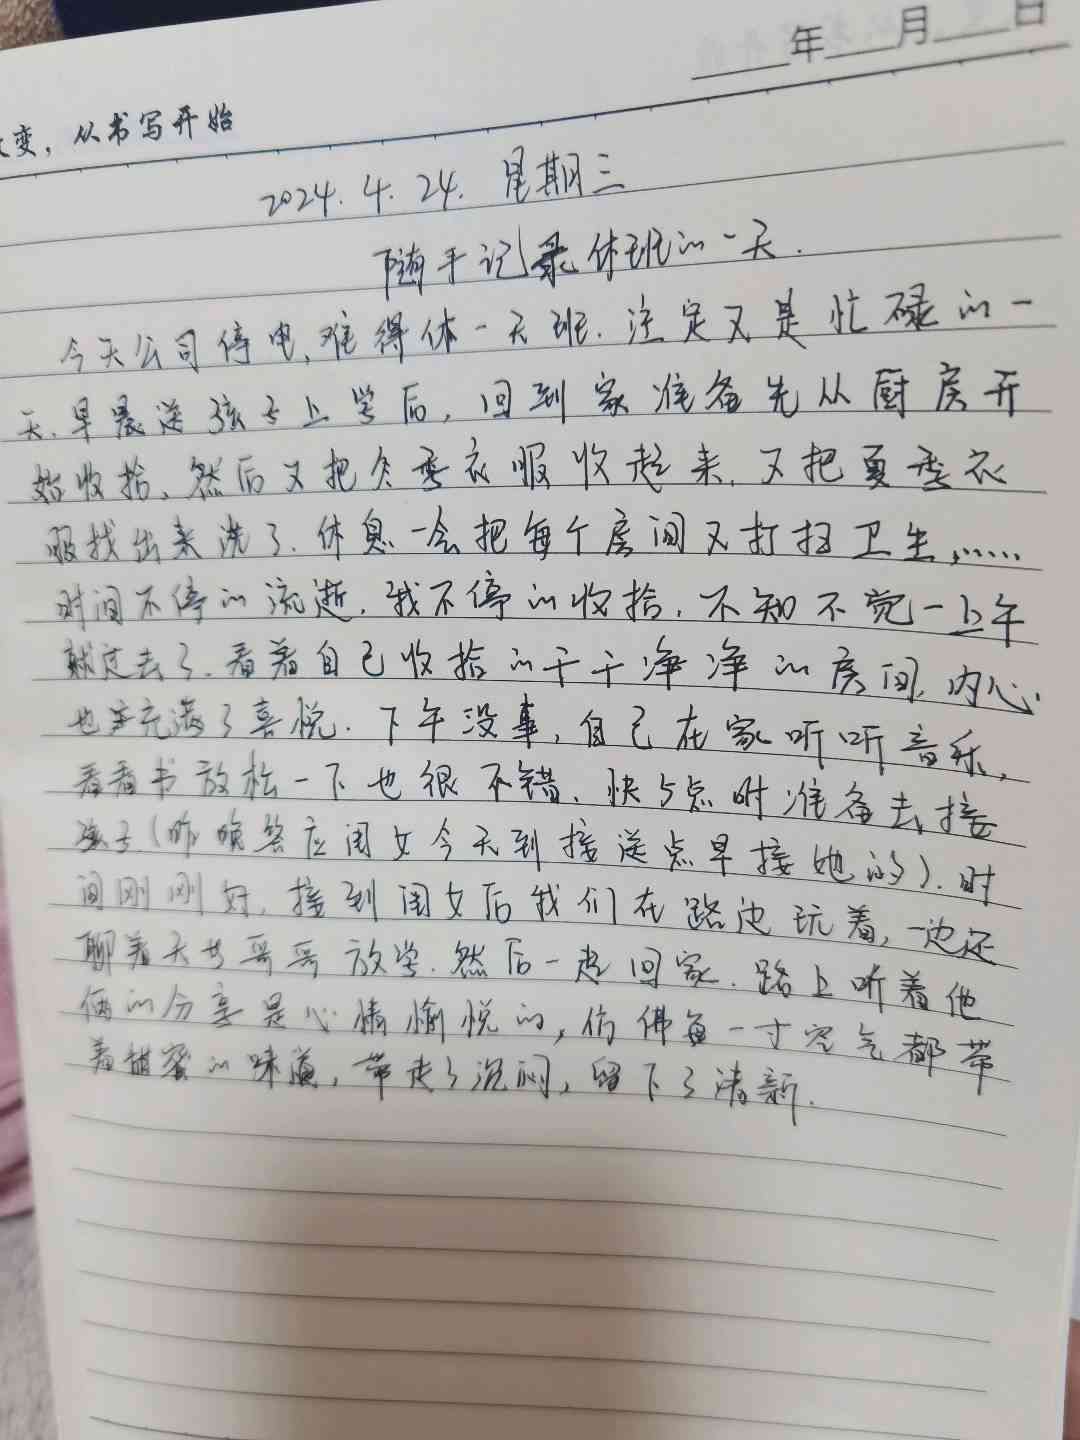 年 月 日
变，从书写开始
2024.4.24. 星期三
随手记录休班的一天.
今天公司停电,难得休一天班.注定又是忙碌的一
天.早晨送孩子上学后,回到家准备先从厨房开
始收拾、然后又把冬季衣服收起来,又把夏季衣
服找出来洗了.休息一会把每个房间又打扫卫生,……
时间不停的流逝,我不停的收拾,不知不觉一上午
就过去了.看着自己收拾的干干净净的房间,内心
也充满了喜悦.下午没事,自己在家听听音乐,
看看书放松一下也很不错、快5点时准备去接
孩子(昨晚答应闺女今天到接送点早接她的).时
间刚刚好,接到闺女后我们在路边玩着,一边还
聊着天等哥哥放学.然后一起回家.路上听着他
俩的分享是心情愉悦的,仿佛每一寸空气都带
着甜蜜的味道,带走了沉闷,留下了清新.